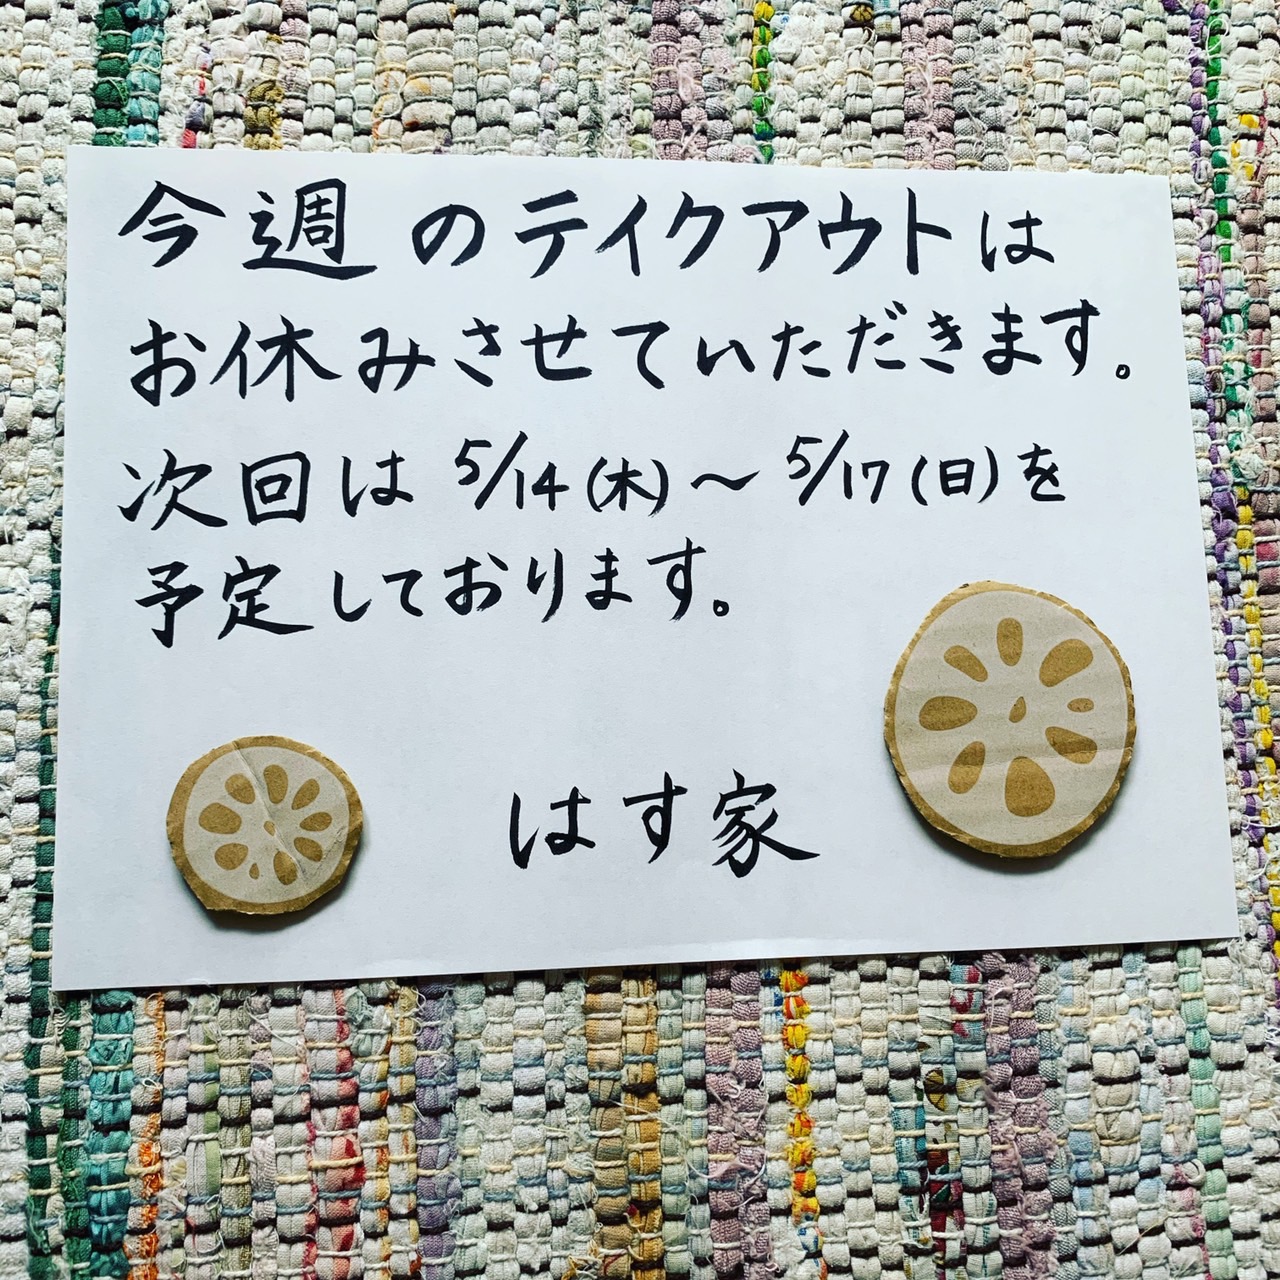 今週のテイクアウトは
お休みさせていただきます。
次回は 5/14(木)～5/17(日)を
予定しております。
はす家